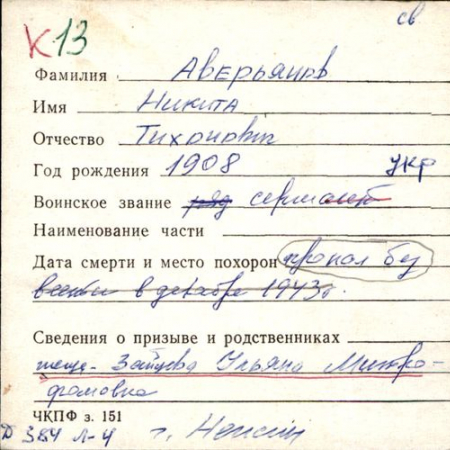 св
К 13
Фамилия Аверьянов
Имя Никита
Отчество Тихонович
Год рождения 1908 укр
Воинское звание ряд сержант
Наименование части
Дата смерти и место похорон пропал без
вести в декабре 1943г.
Сведения о призыве и родственниках
теща - Зайцева Ульяна Митро-
фановна
ЧКПФ з. 151
Д 384 л-4 г.